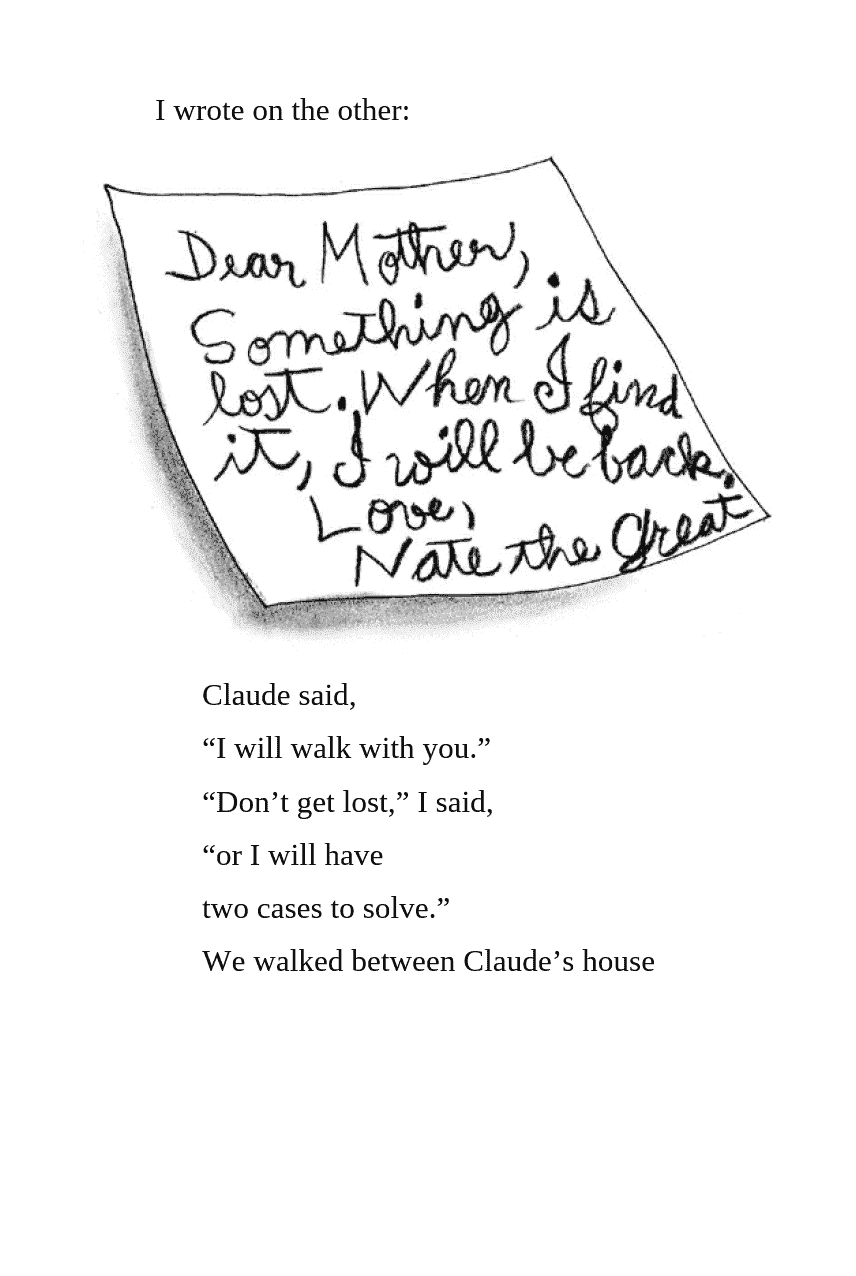 I wrote on the other:
Dear Mother,
Something is
lost. When I find
it, I will be back.
Love,
Nate the Great
Claude said,
“I will walk with you.”
“Don’t get lost,” I said,
“or I will have
two cases to solve.”
We walked between Claude’s house